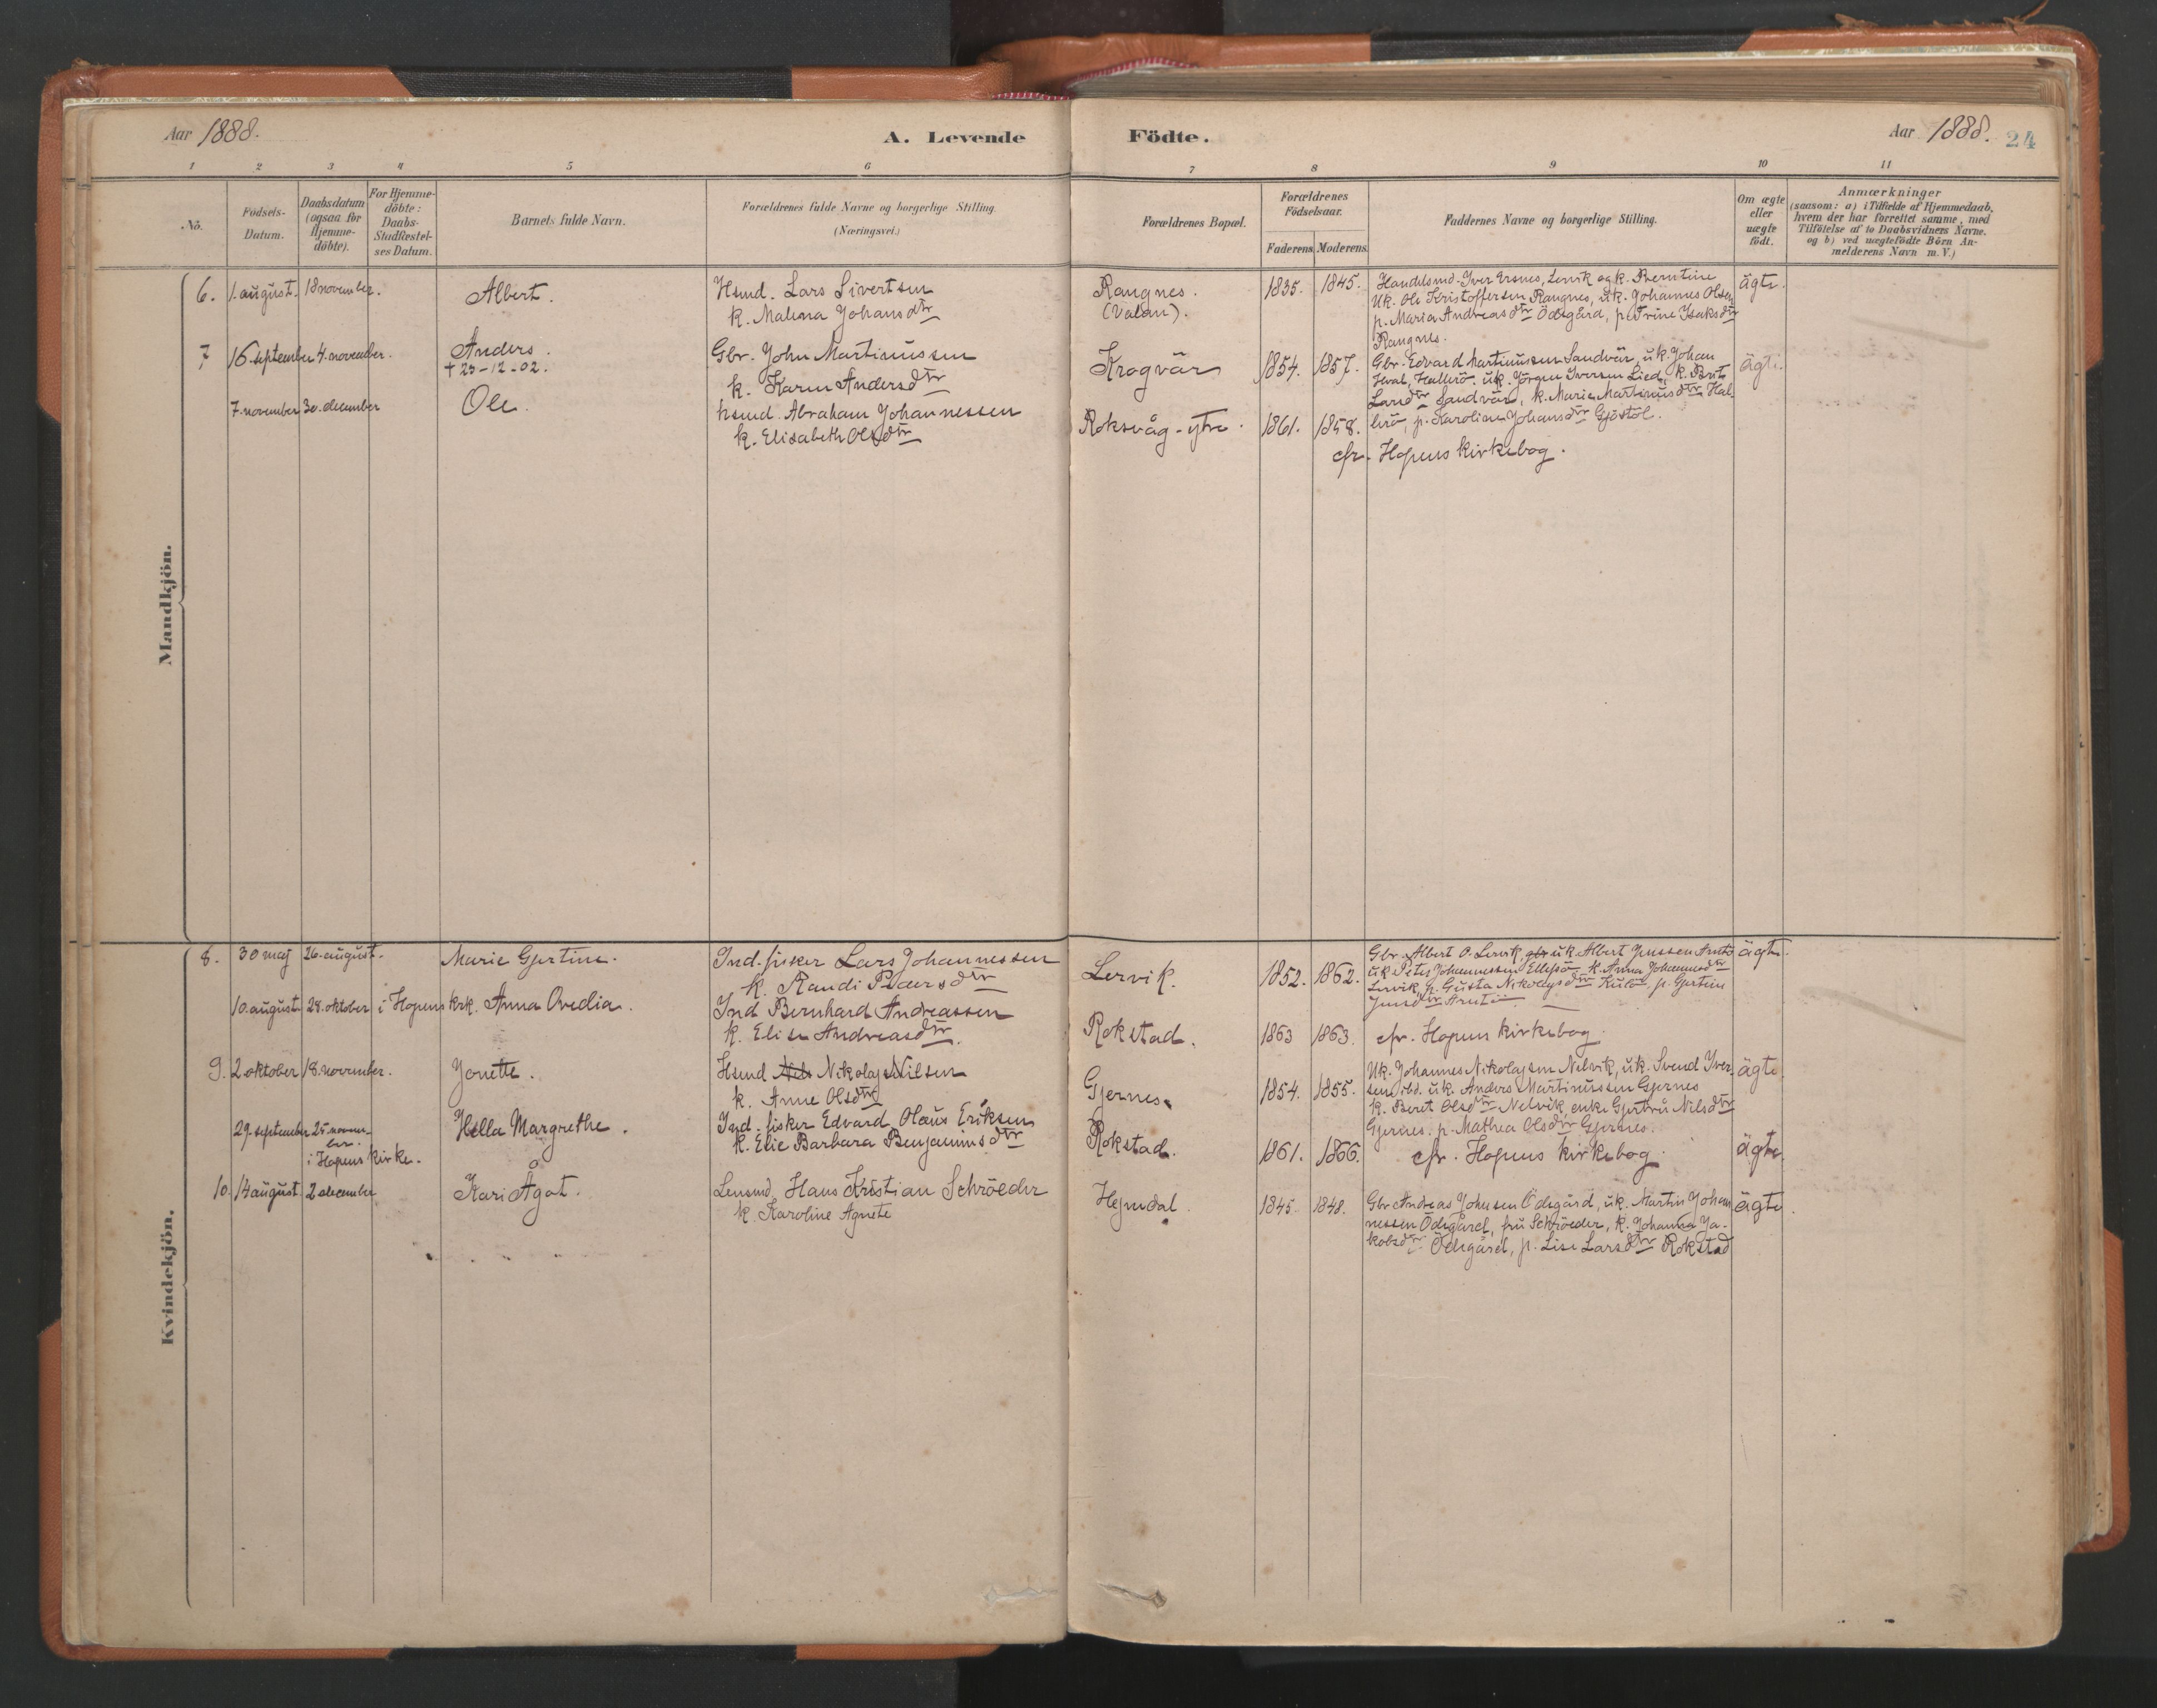 Aar 1888.
A. Levende Födte.
Aar 1888. 24
1 2 3 4 5 6 7 8 9 10 11
No.
Födsels-Datum.
Daabsdatum (ogsaa for Hjemme-döbte).
For Hjemme-döbte: Daabs-Stadfæstel-ses Datum.
Barnets fulde Navn.
Forældrenes fulde Navne og borgerlige Stilling. (Næringsvei.)
Forældrenes Bopæl.
Forældrenes Födselsaar.
Faderens Moderens
Faddernes Navne og borgerlige Stilling.
Om ægte eller uægte födt.
Anmærkninger
(saasom: a) i Tilfælde af Hjemmedaab,
hvem der har forrettet samme, med
Tilföielse af to Daabsvidners Navne.
og b) ved uægtefödte Börn An-
melderens Navn m. V.)
Mandkjön.
6. 1. august. 18 november. Albert.
Hsmd. Lars Sivertsen
k. Malena Johansdtr
Rangnes.
(Valan).
1835. 1845.
Handelsmd. Iver Ersnes, Lervik og k. Berntine
Uk. Ole Kristoffersen Rangnes, uk. Johannes Olsen
p. Maria Andreasdtr Ödegård, p. Trine Isaksdtr
Rangnes.
ägte.
7 16. september 4. november. Anders.
+ 25-12-02.
Gbr. John Martinussen
k. Karen Andersdtr
Krogvär
1854. 1857.
Gbr. Edvard Martinussen Sandvär, uk. Johan
Hval, Hallerö. uk. Jörgen Iversen Lied, k. Brit
Larsdtr Sandvär, k. Marie Martinusdtr Hal
lerö, p. Karoline Johansdtr Gjöstöl.
ägte.
7. november 30. december Ole.
Hsmd. Abraham Johannessen
k. Elisabeth Olsdtr
Roksvåg-ytre.
1861. 1858.
cfr. Hopens kirkebog.
Kvindekjön.
8. 30 maj 26. august. Marie Gjertine.
Ind. fisker Lars Johannessen
k. Randi Pedersdtr
Lervik.
1852. 1862.
Gbr. Albert O. Lervik, uk. Albert Jenssen
uk Peter Johannessen k. Anna Johannesdtr
Lervik, p. Gusta Nikolaysdtr p. Gjertine
Jensdtr
ägte.
10. august. 28. oktober i Hopens krk. Anna Ovedia.
Ind Bernhard Andreassen
k. Elise Andreasdtr.
Rokstad.
1863 1863.
cfr. Hopens kirkebog
9. 2 oktober 18. november. Jonette.
Hsmd Nels Nikolaj Nilsen
k. Anne Olsdtr
Gjernes.
1854. 1855.
Uk. Johannes Nikolajsen Nelvik, uk. Svend Iver
sen ibd. uk. Anders Martinussen Gjernes
k. Beret Olsdtr Nelvik, enke Gjertru Nilsdtr
Gjernes. p. Mathea Olsdtr Gjernes.
ägte.
29. september 25 novem-
ber.
i Hopens kirke.
Hella Margrethe.
Ind. fisker Edvard Olaus Eriksen
k. Elie Barbara Benjaminsdtr
Rokstad.
1861. 1866.
cfr. Hopens kirkebog.
ägte.
10. 14 august. 2 december Kari Ågot.
Lensmd. Hans Kristian Schröeder
k. Karoline Agnete
Hejmdal.
1845. 1848.
Gbr Andreas Johnsen Ödegård, uk. Martin Johan
nessen Ödegård, fru Schröeder, k. Johanna Ja-
kobsdtr. Ödegård, p. Lise Larsdtr Rokstad
ägte.